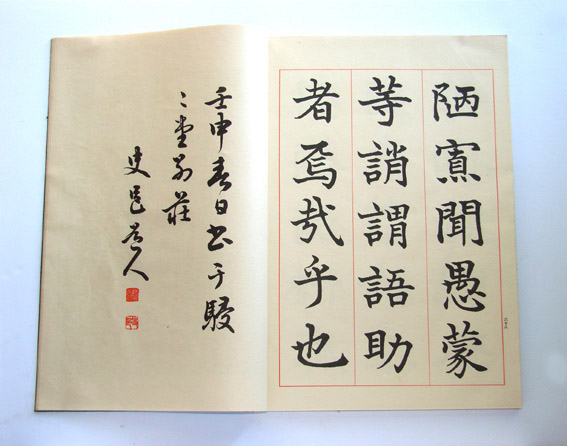 陋寡聞愚蒙
等誚謂語助
者焉哉乎也
壬申春日書于駸
々堂別莊
史邑道人